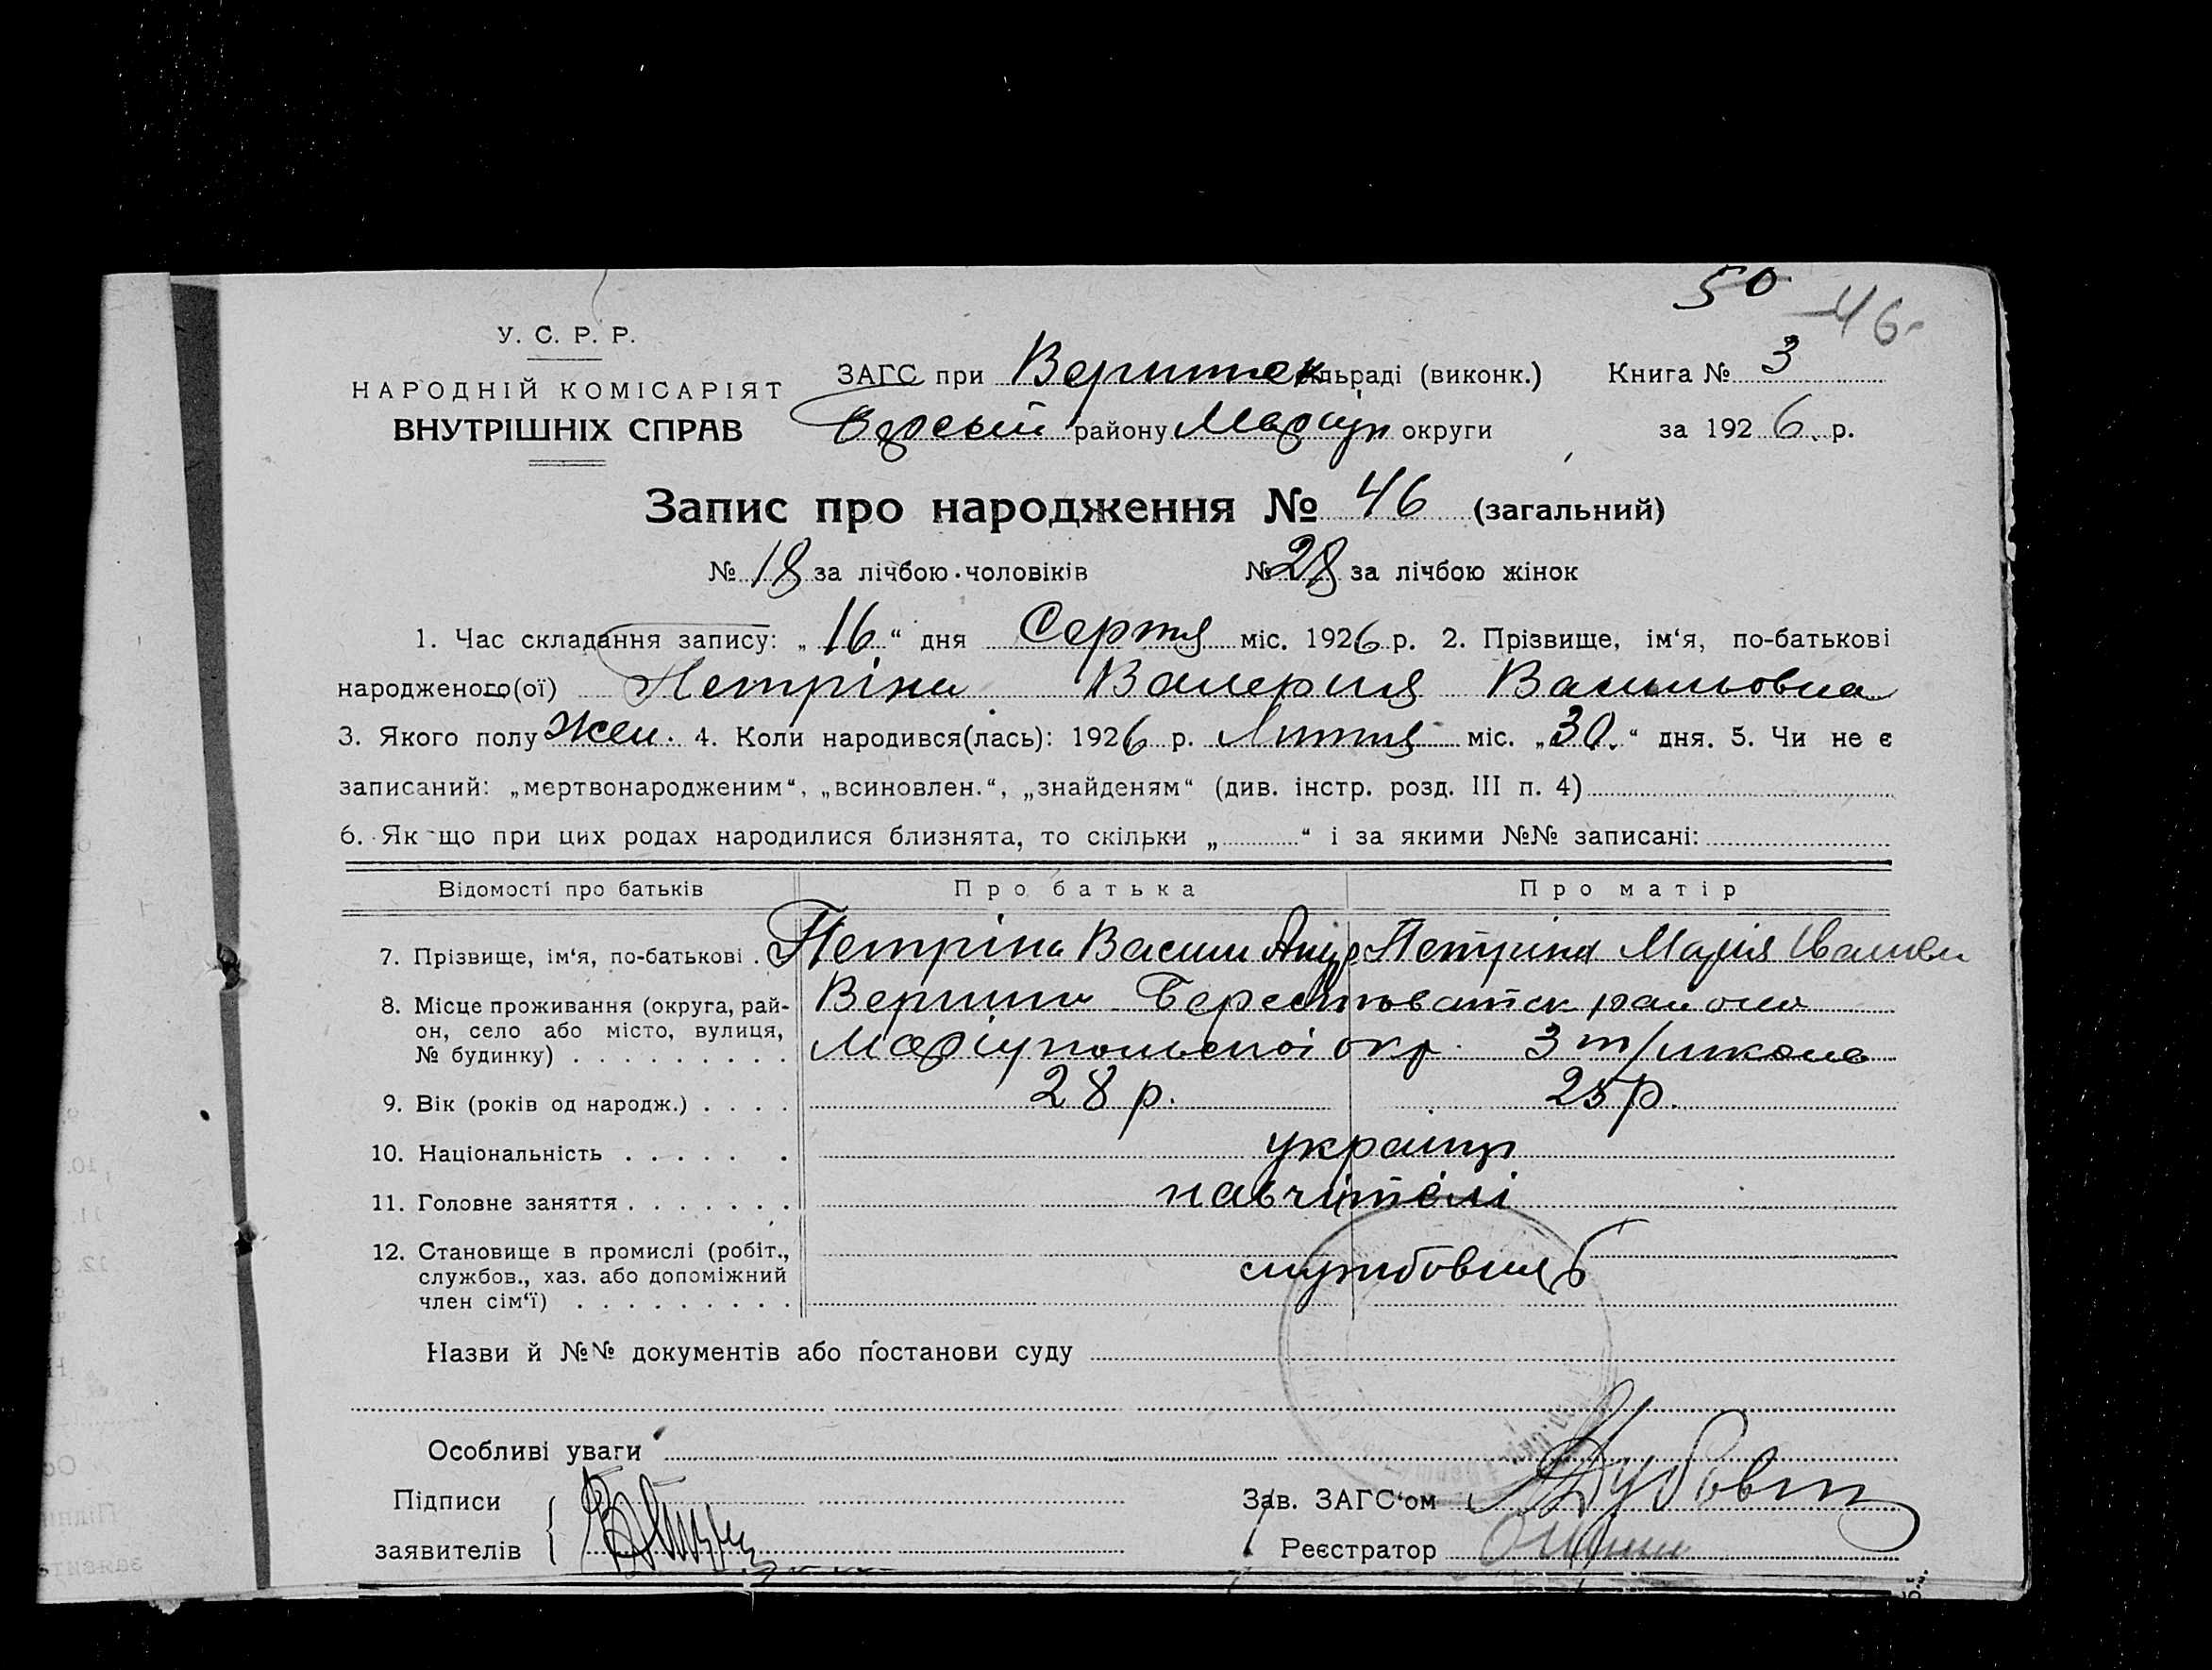 50
46
У. С. Р. Р.
НАРОДНІЙ КОМІСАРІЯТ
ВНУТРІШНІХ СПРАВ
ЗАГС при Вершинск льраді (виконк.) Книга № 3
району Маріуп округи за 1926 р.
Запис про народження № 46 (загальний)
№ 18 за лічбою чоловіків № 28 за лічбою жінок
1. Час складання запису: „16“ дня Серпня міс. 1926 р. 2. Прізвище, ім‘я, по-батькові
народженого(ої) Петріна Валерия Васильовна
3. Якого полу Жен. 4. Коли народився(лась): 1926 р. Липня міс. „30.“ дня. 5. Чи не є
записаний: „мертвонародженим“, „всиновлен.“, „знайденям“ (див. інстр. розд. III п. 4)
6. Як що при цих родах народилися близнята, то скільки „ “ і за якими №№ записані:
Відомості про батьків Про батька Про матір
7. Прізвище, ім‘я, по-батькові . Петріна Васили Андр Петріна Марія Ивановн
8. Місце проживання (округа, рай- Вершини Берестоватск района
он, село або місто, вулиця, Маріупольскої окр. 3 т/школа
№ будинку) . . . . . . . . .
9. Вік (років од народж.) . . . . 28 р. 25 р.
10. Національність . . . . . . українці
11. Головне заняття . . . . . . . навчітелі
12. Становище в промислі (робіт., службовця
службов., хаз. або допоміжний
член сім‘ї) . . . . . . . . .
Назви й №№ документів або постанови суду
Особливі уваги
Підписи Зав. ЗАГС‘ом
заявителів Реєстратор